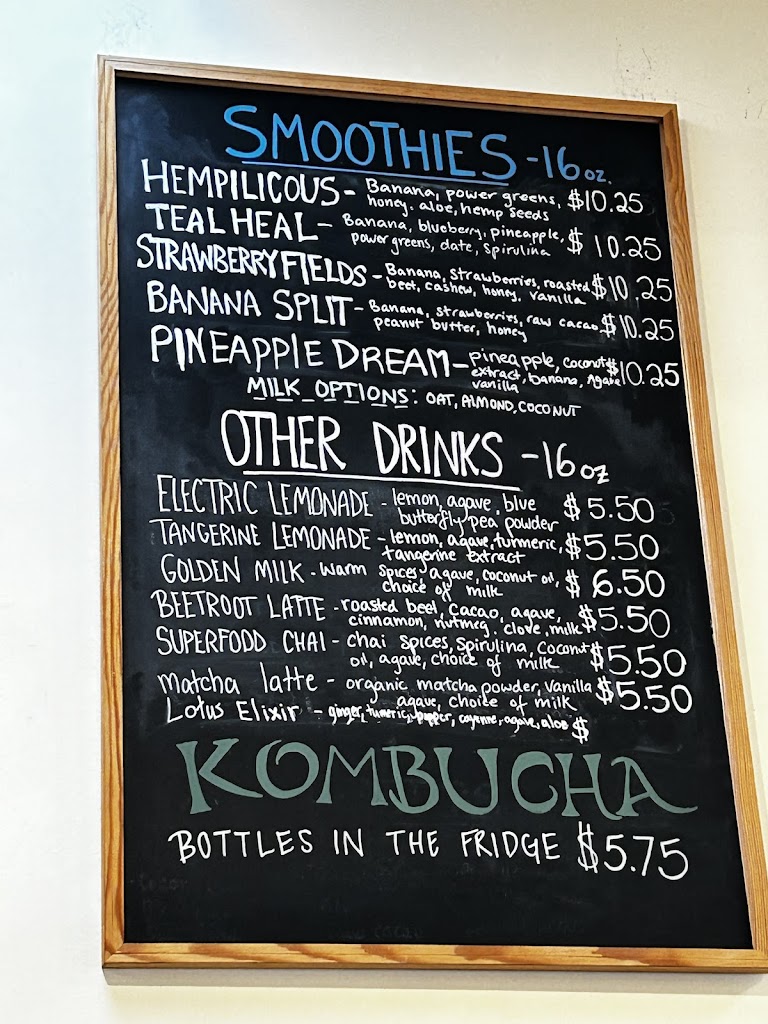 SMOOTHIES - 16 oz.
HEMPILICOUS - Banana, power greens, $10.25
honey. aloe, hemp seeds
TEAL HEAL - Banana, blueberry, pineapple, $10.25
power greens, date, spirulina
STRAWBERRY FIELDS - Banana, strawberries, roasted $10.25
beet, cashew, honey, vanilla
BANANA SPLIT - Banana, strawberries, raw cacao, $10.25
peanut butter, honey
PINEAPPLE DREAM - pineapple, coconut $10.25
extract, banana, Agave
vanilla
MILK OPTIONS: OAT, ALMOND, COCONUT
OTHER DRINKS - 16 oz
ELECTRIC LEMONADE - lemon, agave, blue $5.50
butterfly pea powder
TANGERINE LEMONADE - lemon, agave, turmeric, $5.50
tangerine extract
GOLDEN MILK - warm spices, agave, coconut oil, $6.50
choice of milk
BEETROOT LATTE - roasted beet, cacao, agave, $5.50
cinnamon, nutmeg. clove, milk
SUPERFODD CHAI - chai spices, spirulina, coconut $5.50
oil, agave, choice of milk
matcha latte - organic matcha powder, vanilla $5.50
agave, choice of milk
Lotus Elixir - ginger, tumeric, pepper, cayenne, agave, aloe $
KOMBUCHA
BOTTLES IN THE FRIDGE $5.75